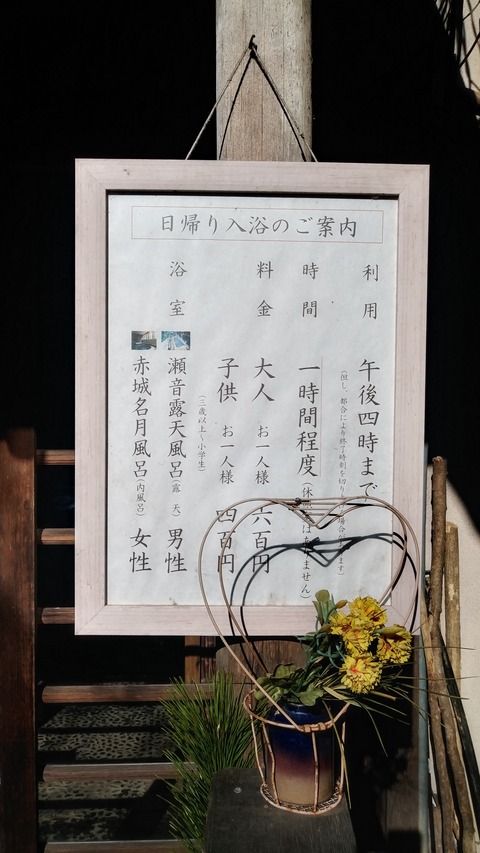 日帰り入浴のご案内
利用 午後四時まで
(但し、都合により終了時刻を切り 場合が ます)
時間 一時間程度(休 は ません)
料金 大人 お一人様 六百円
子供 お一人様 四百円
(三歳以上～小学生)
浴室 瀬音露天風呂(露天) 男性
赤城名月風呂(内風呂) 女性